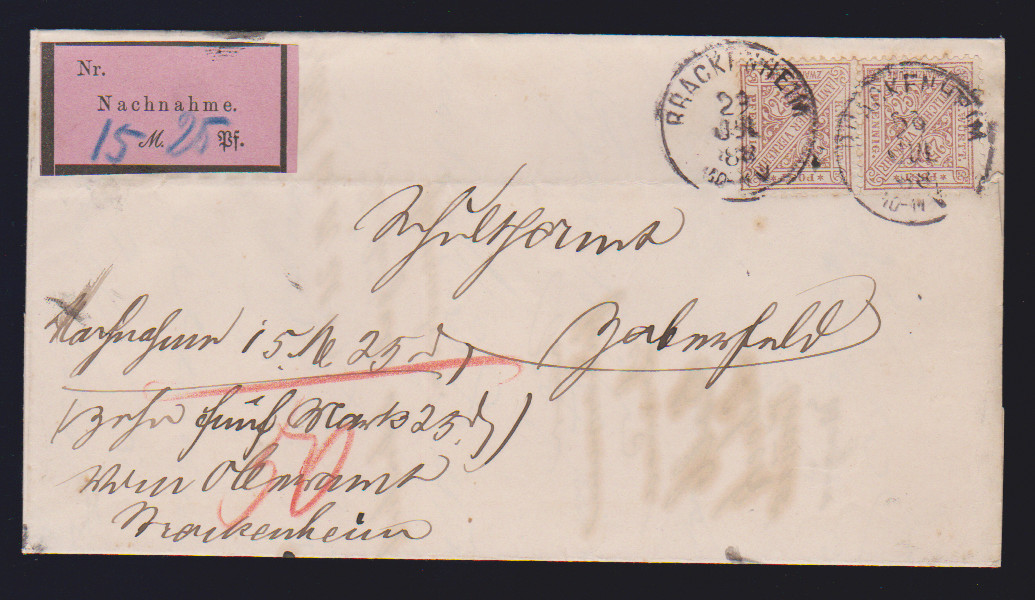 Nr.
Nachnahme.
15 M. 25 Pf.
BRACKENHEIM
29
JUL
88
10-11 V
BRACKENHEIM
29
JUL
88
10-11 V
Schultheißenamt
Zaberfeld
Nachnahme 15 M 25 d
(zehn fünf Mark 25 d)
50
vom Oberamt
Brackenheim